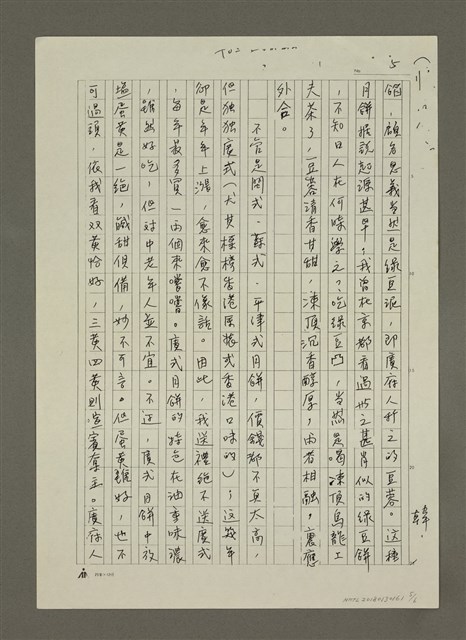 餡，顧名思義當然是綠豆泥，即廣府人稱之的豆蓉。這種
月餅據說起源甚早，我曾在京都看過與之甚肖似的綠豆餅
，不知日人在何時學之？吃綠豆凸，當然是喝凍頂烏龍工
夫茶了，豆蓉清香甘甜，凍頂沉香醇厚，兩者相融，裏應
外合。
不管是閩式、蘇式、平津式月餅，價錢都不算太高，
但獨獨廣式（尤其標榜香港風味或香港口味的），這幾年
卻是年年上漲，愈來愈不像話。因此，我送禮絕不送廣式
，每年最多買一兩個來嚐嚐。廣式月餅的特色在油重味濃
，雖然好吃，但對中老年人並不宜。不過，廣式月餅中放
鹹蛋黃是一絕，鹹甜俱備，妙不可言。但蛋黃雖好，也不
可過頭，依我看双黃恰好，三黃四黃則喧賓奪主。廣府人
5/6